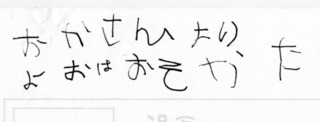 おかさんひたり
よおはおそかた